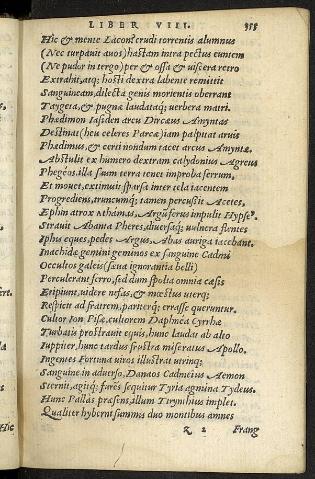 LIBER VIII.
Hic & mente Lacon: crudi torrentis alumnus
(Nec turpauit auos) hastam intra pectus euntem
(Ne pudor in tergo) per & ossa & uiscera retro
Extrahit, atq; hosti dextra labente remittit
Sanguineam, dilecta genis morientis oberrant
Taygeta, & pugnæ laudataq; uerbera matri.
Phædimon Iasiden arcu Dircæus Amyntas
Destinat (heu celeres Parcæ) iam palpitat aruis
Phædimus, & certi nondum tacet arcus Amyntæ.
Abstulit ex humero dextram calydonius Agreus
Phegeos. illa suum terra tenet improba ferrum,
Et mouet, extimuit sparsa inter tela iacentem
Progrediens, truncumq; tamen percussit Acetes,
Iphin atrox Athamas, Argum ferus impulit Hypse
Strauit Abanta Pheres, diuersaq; uulnera flentes
Iphu eques, pedes Argus, Abas auriga iacebant.
Inachidæ gemini geminos ex sanguine Cadmi
Occultos galeis (sæua ignorantia belli)
Perculerant ferro, sed dum spolia omnia cæsis
Eripiunt, uidere nefas, & mœstus uterq;
Respicit ad fratrem, pariterq; errasse queruntur.
Cultor Ion Pisæ, cultorem Daphnea Cyrrhæ
Turbatis prostrauit equis, hunc laudat ab alto
Iuppiter, hunc tardus frostra miseratus Apollo.
Ingentes Fortuna uiros illustrat utrinq;
Sanguine in aduerso, Danaos Cadmeius Aemon
Sternit, agitq; furens sequitur Tyria agmina Tydeus.
Hunc Pallas præsens, illum Tirynthius implet.
Qualiter hyberni summis duo montibus amnes
2
Frang
Hic